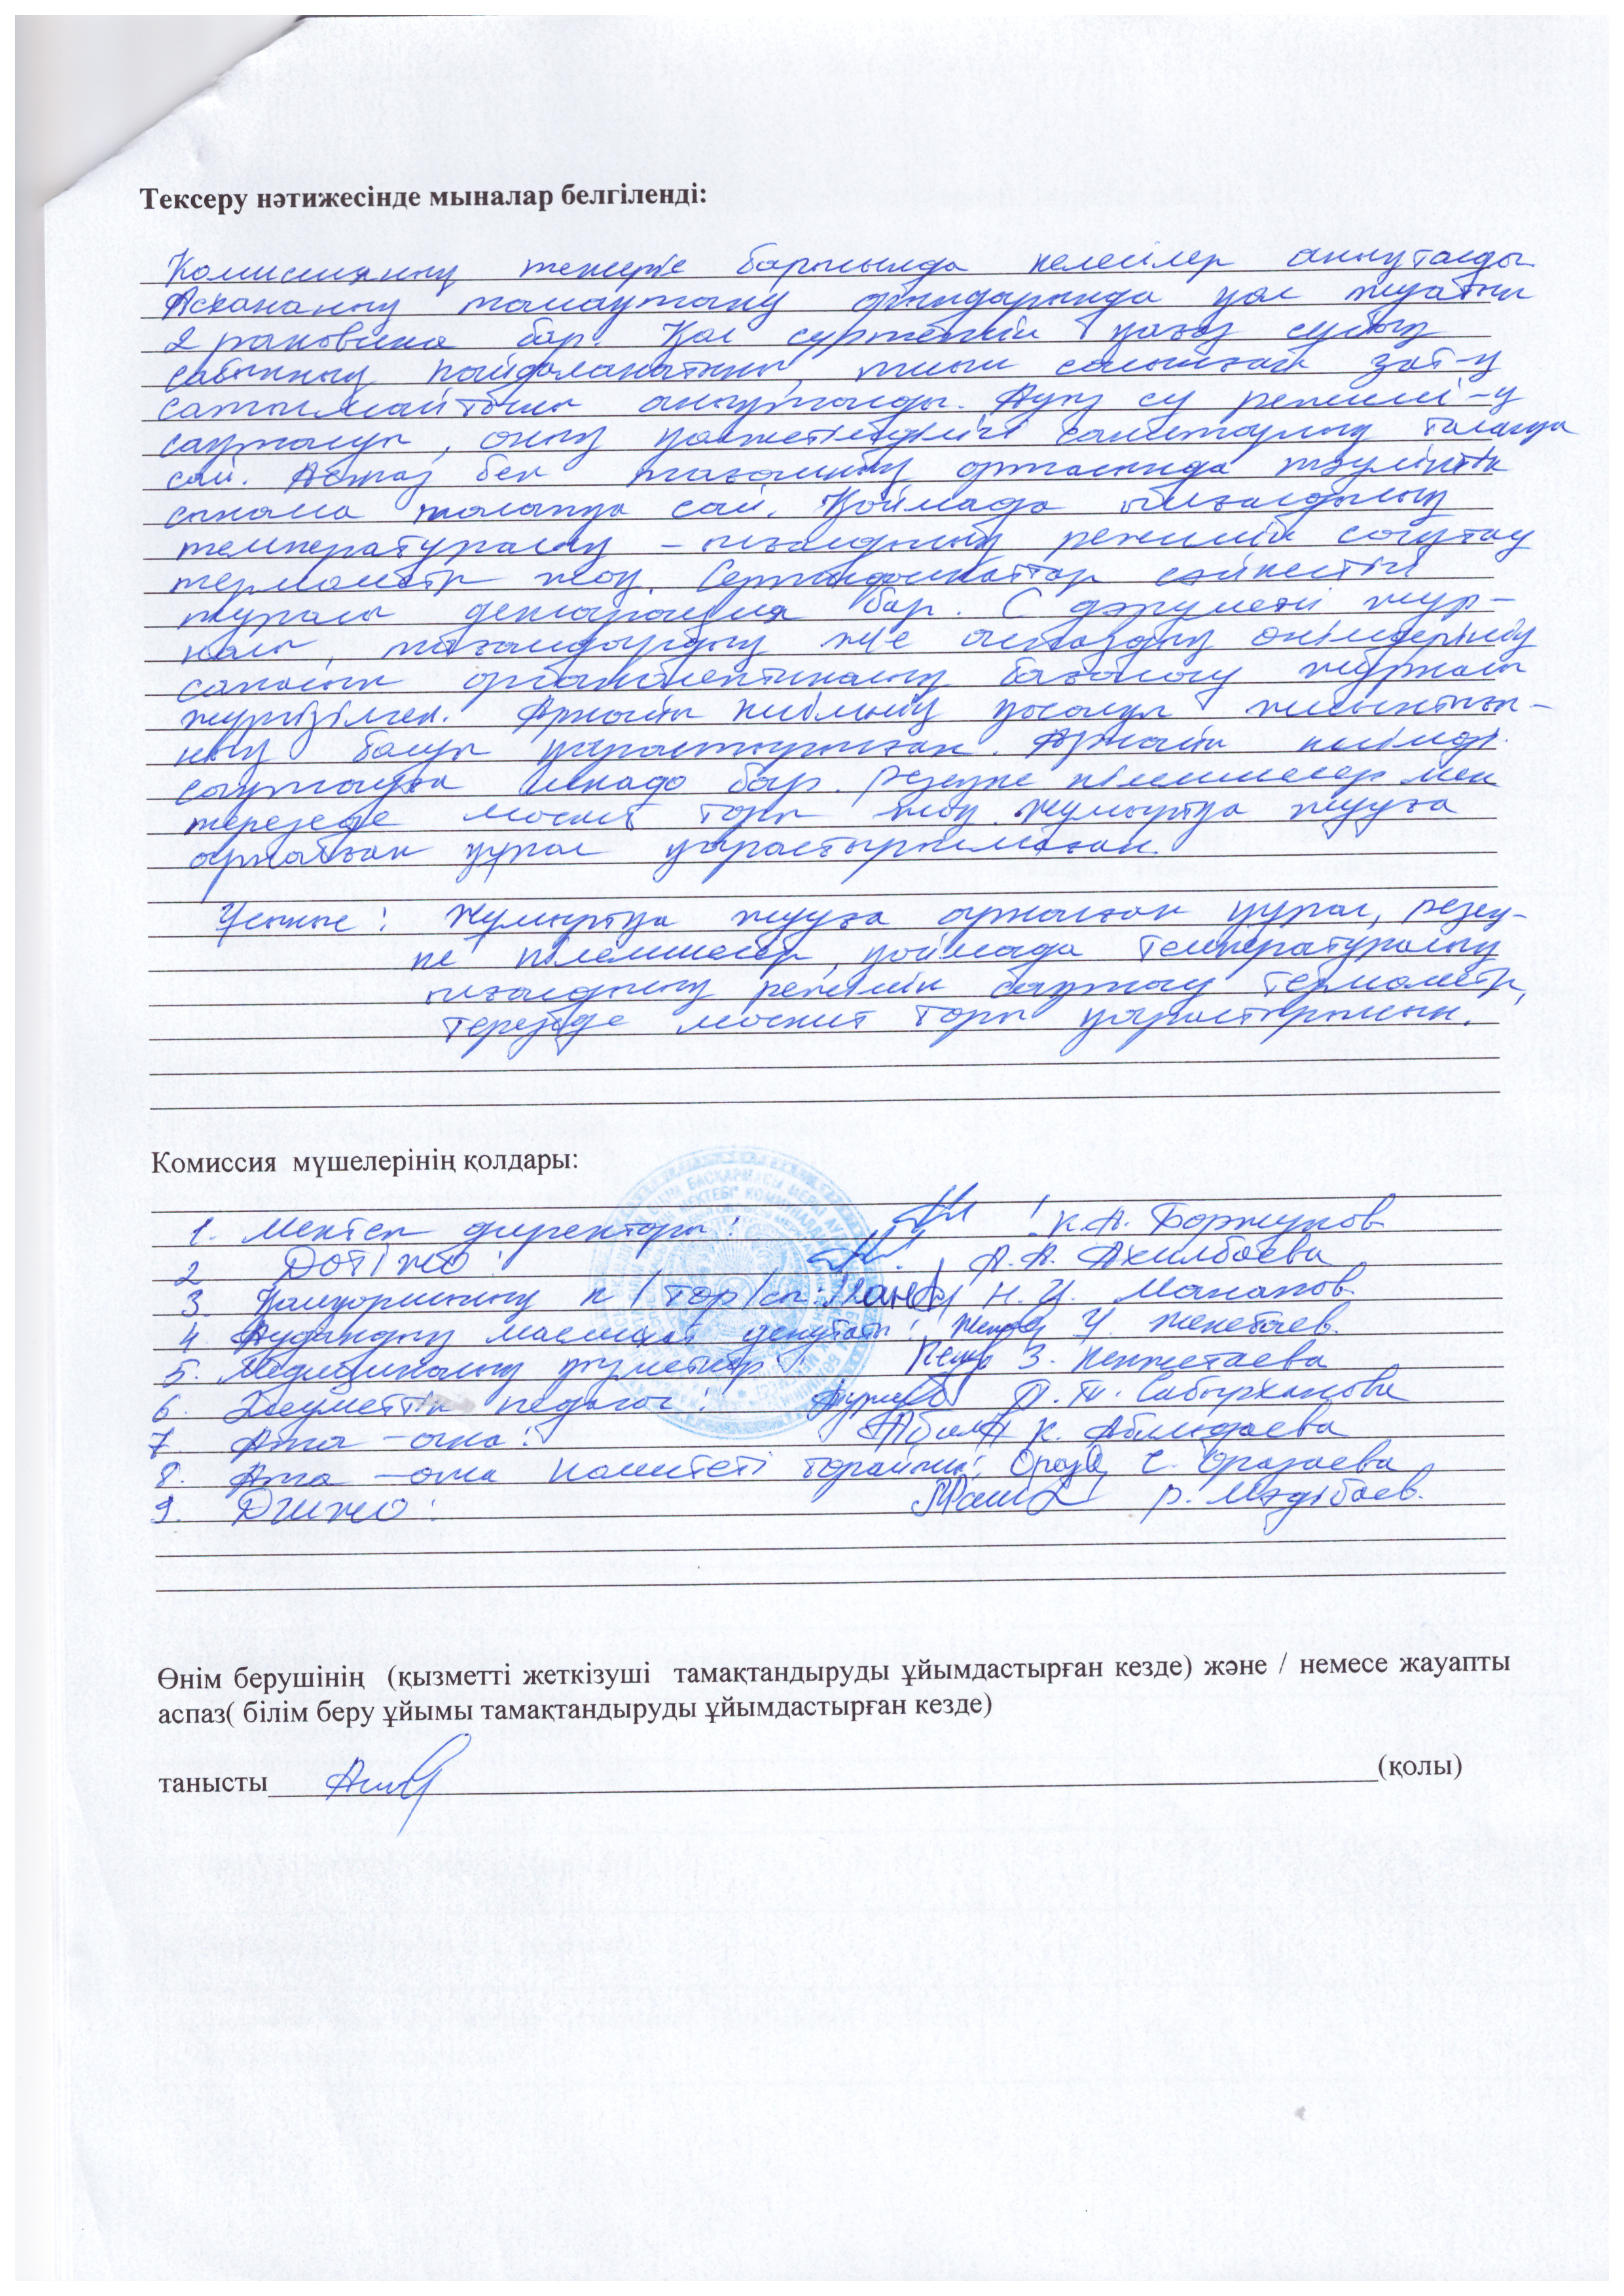 Тексеру нәтижесінде мыналар белгіленді:
Комиссияның тексеру барысында келесілер анықталды
Асхананың тамақтану орындарында қол жуатын
2 раковина бар. Қол сүртетін қағаз сұйық
сабынның пайдаланатыны, тыйым салынған зат-қ
сатылмайтыны анықталды. Ауыз су режимі-ң
сақталуы, оның қолжетімділігі санитарлық талапқа
сай. Аспаз бен тағамның ортасында тәуліктік
сынама талапқа сай. Қоймада ылғалдылық
температуралау - ылғалдылық режимін сақтау
термометр жоқ. Сертификаттар сәйкестігі
туралы декларация бар. С дәрумені жур-
налы, тағамдардың және аспаздық өнімдерінің
сапасын органолептикалық бағалау журналы
жүргізілген. Арнайы киімнің қосалқы жиынтығы-
ның болуы қарастырылған. Арнайы киімді
сақтауға шкаф бар. резеңке кілемшелер мен
терезеде москит торы жоқ. жұмыртқа жууға
арналған құрал қарастырылмаған.
Ұсыныс: Жұмыртқа жууға арналған құрал, резең-
ке кілемшелер, қоймада температуралық
ылғалдылық режимін сақтау термометр,
терезеде москит торы қарастырылсын.
Комиссия мүшелерінің қолдары:
1. Мектеп директоры: К.А. Боржуков
2 ДОТІЖО: А.А. Ахилбаева
3. Қамқоршылық к/төр/сы: Н.Ү. Манапов
4 Аудандық маслихат депутаты: Ү. Женебаев.
5. Медициналық қызметкер: З. Кенжетаева
6. Әлеуметтік педагог: П.Т. Сабырханова
7. Ата-ана: К. Абилдаева
8. Ата-ана комитеті төрайымы: С. Оразаева
9. ДШЖО: Р. Мәдібаев.
Өнім берушінің (қызметті жеткізуші тамақтандыруды ұйымдастырған кезде) және / немесе жауапты
аспаз( білім беру ұйымы тамақтандыруды ұйымдастырған кезде)
танысты (қолы)